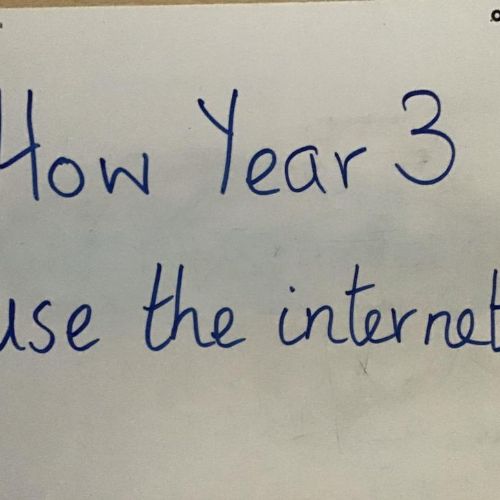 How Year 3
use the internet